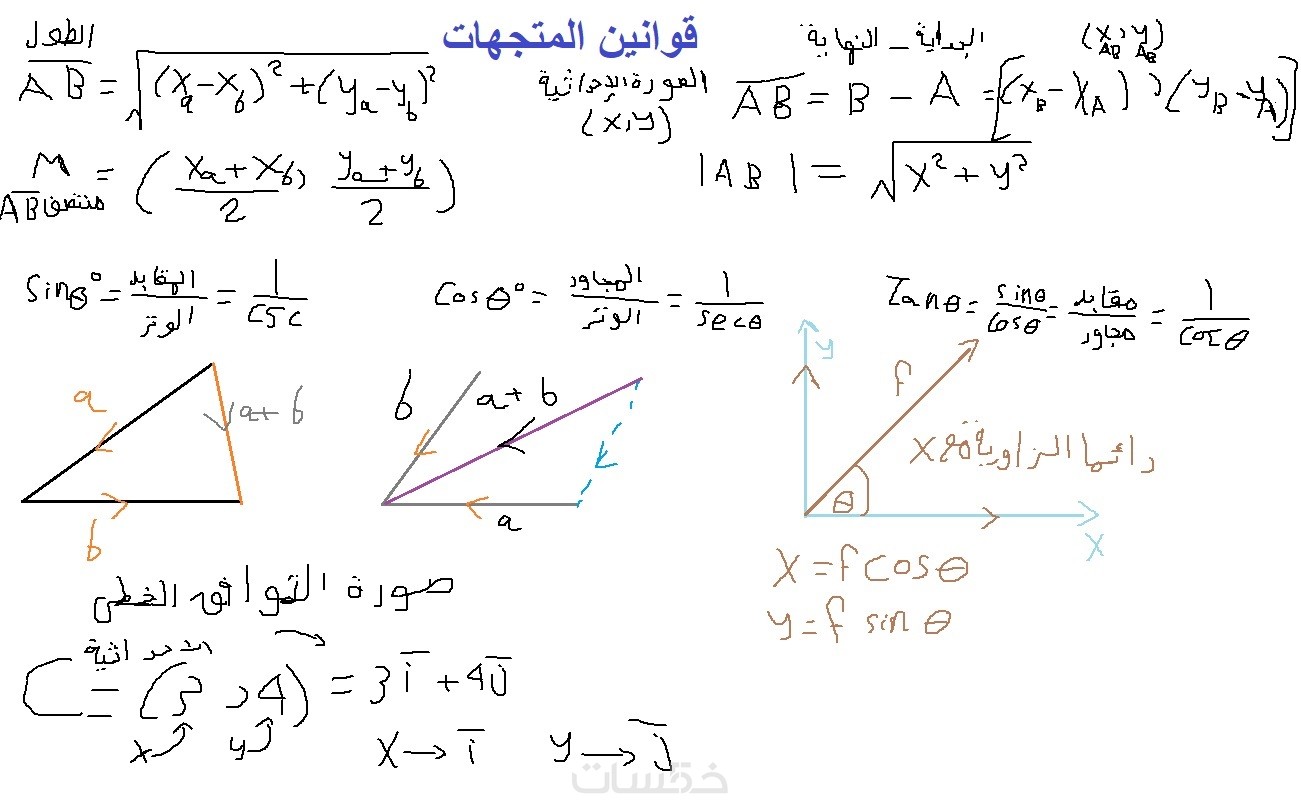 قوانين المتجهات
الطول
AB = √(xₐ-x_b)² + (yₐ-y_b)²
الصورة الإحداثية
(x,y)
البداية - النهاية
(x,y)
AB AB
AB = B - A = [(x_B - x_A) , (y_B - y_A)]
M = (xₐ+x_b/2 , yₐ+y_b/2)
منتصف AB
|AB| = √x²+y²
sinθ° = المقابل/الوتر = 1/csc
cosθ° = المجاور/الوتر = 1/secθ
Tanθ = sinθ/cosθ = مقابل/مجاور = 1/cotθ
a
a+b
b
b
a+b
a
y
f
دائما الزاوية مع x
θ
x
x = f cosθ
y = f sin θ
صورة التوافق الخطي
الاحداثية
C = (3 , 4) = 3i + 4j
x y
x → i y → j
خمسات